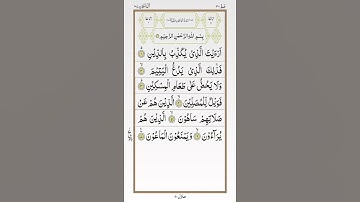 بِسْمِ اللهِ الرَّحْمٰنِ الرَّحِيْمِ
اَرَءَيْتَ الَّذِىْ يُكَذِّبُ بِالدِّيْنِ
فَذٰلِكَ الَّذِىْ يَدُعُّ الْيَتِيْمَ
وَلَا يَحُضُّ عَلٰى طَعَامِ الْمِسْكِيْنِ
فَوَيْلٌ لِّلْمُصَلِّيْنَ الَّذِيْنَ هُمْ عَنْ
صَلَاتِهِمْ سَاهُوْنَ الَّذِيْنَ هُمْ
يُرَآءُوْنَ وَيَمْنَعُوْنَ الْمَاعُوْنَ